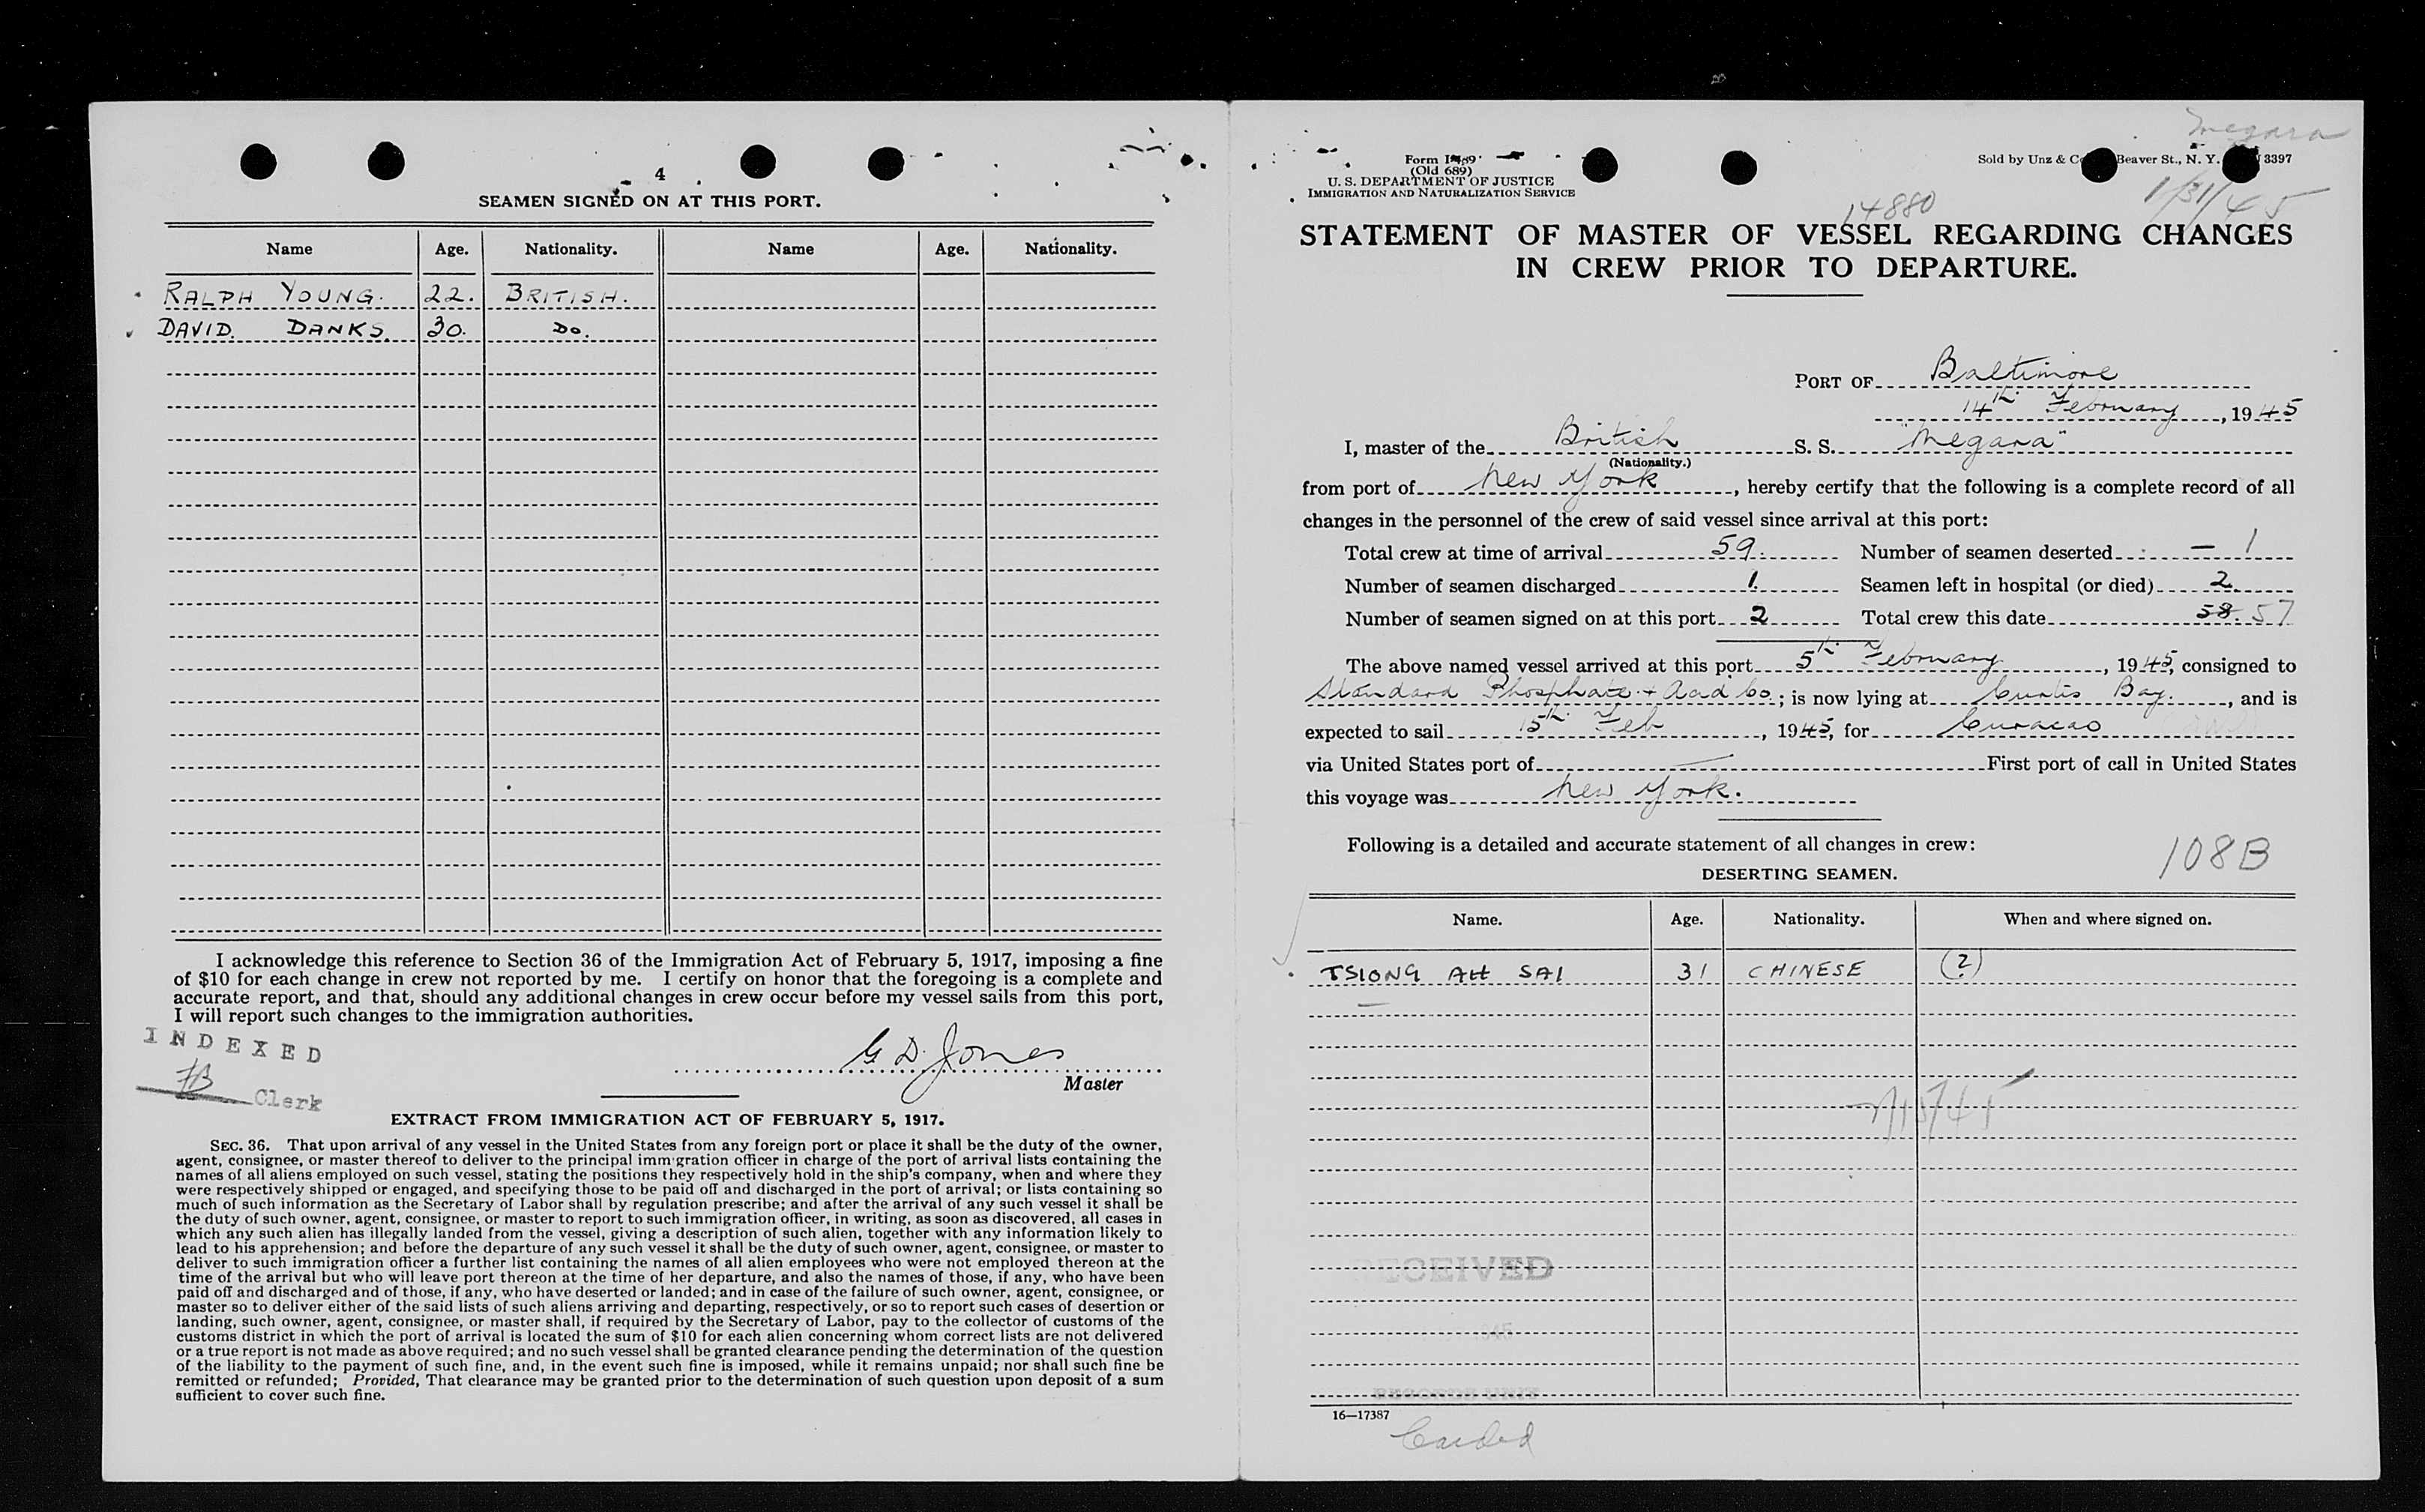 4
SEAMEN SIGNED ON AT THIS PORT.
Name Age. Nationality. Name Age. Nationality.
RALPH YOUNG. 22. BRITISH.
DAVID. DANKS. 30. Do.
I acknowledge this reference to Section 36 of the Immigration Act of February 5, 1917, imposing a fine
of $10 for each change in crew not reported by me. I certify on honor that the foregoing is a complete and
accurate report, and that, should any additional changes in crew occur before my vessel sails from this port,
I will report such changes to the immigration authorities.
INDEXED
FB Clerk
G D. Jones
Master
EXTRACT FROM IMMIGRATION ACT OF FEBRUARY 5, 1917.
SEC. 36. That upon arrival of any vessel in the United States from any foreign port or place it shall be the duty of the owner,
agent, consignee, or master thereof to deliver to the principal immigration officer in charge of the port of arrival lists containing the
names of all aliens employed on such vessel, stating the positions they respectively hold in the ship's company, when and where they
were respectively shipped or engaged, and specifying those to be paid off and discharged in the port of arrival; or lists containing so
much of such information as the Secretary of Labor shall by regulation prescribe; and after the arrival of any such vessel it shall be
the duty of such owner, agent, consignee, or master to report to such immigration officer, in writing, as soon as discovered, all cases in
which any such alien has illegally landed from the vessel, giving a description of such alien, together with any information likely to
lead to his apprehension; and before the departure of any such vessel it shall be the duty of such owner, agent, consignee, or master to
deliver to such immigration officer a further list containing the names of all alien employees who were not employed thereon at the
time of the arrival but who will leave port thereon at the time of her departure, and also the names of those, if any, who have been
paid off and discharged and of those, if any, who have deserted or landed; and in case of the failure of such owner, agent, consignee, or
master so to deliver either of the said lists of such aliens arriving and departing, respectively, or so to report such cases of desertion or
landing, such owner, agent, consignee, or master shall, if required by the Secretary of Labor, pay to the collector of customs of the
customs district in which the port of arrival is located the sum of $10 for each alien concerning whom correct lists are not delivered
or a true report is not made as above required; and no such vessel shall be granted clearance pending the determination of the question
of the liability to the payment of such fine, and, in the event such fine is imposed, while it remains unpaid; nor shall such fine be
remitted or refunded; Provided, That clearance may be granted prior to the determination of such question upon deposit of a sum
sufficient to cover such fine.
Megara
Form I-489
(Old 689)
U. S. DEPARTMENT OF JUSTICE
IMMIGRATION AND NATURALIZATION SERVICE
Sold by Unz & Co Beaver St., N. Y. 3397
14880
1/31/45
STATEMENT OF MASTER OF VESSEL REGARDING CHANGES
IN CREW PRIOR TO DEPARTURE.
PORT OF Baltimore
14th. February, 1945
I, master of the British S. S. "Megara"
(Nationality.)
from port of New York, hereby certify that the following is a complete record of all
changes in the personnel of the crew of said vessel since arrival at this port:
Total crew at time of arrival 59. Number of seamen deserted — 1
Number of seamen discharged 1. Seamen left in hospital (or died) 2.
Number of seamen signed on at this port 2 Total crew this date 58. 57
The above named vessel arrived at this port 5th. February, 1945, consigned to
Standard Phosphate + Acid Co.; is now lying at Curtis Bay., and is
expected to sail 15th. Feb, 1945, for Curacao
via United States port of — First port of call in United States
this voyage was New York.
Following is a detailed and accurate statement of all changes in crew:
108B
DESERTING SEAMEN.
Name. Age. Nationality. When and where signed on.
TSIONG AH SAI 31 CHINESE (?)
RECEIVED
16—17387
Carded